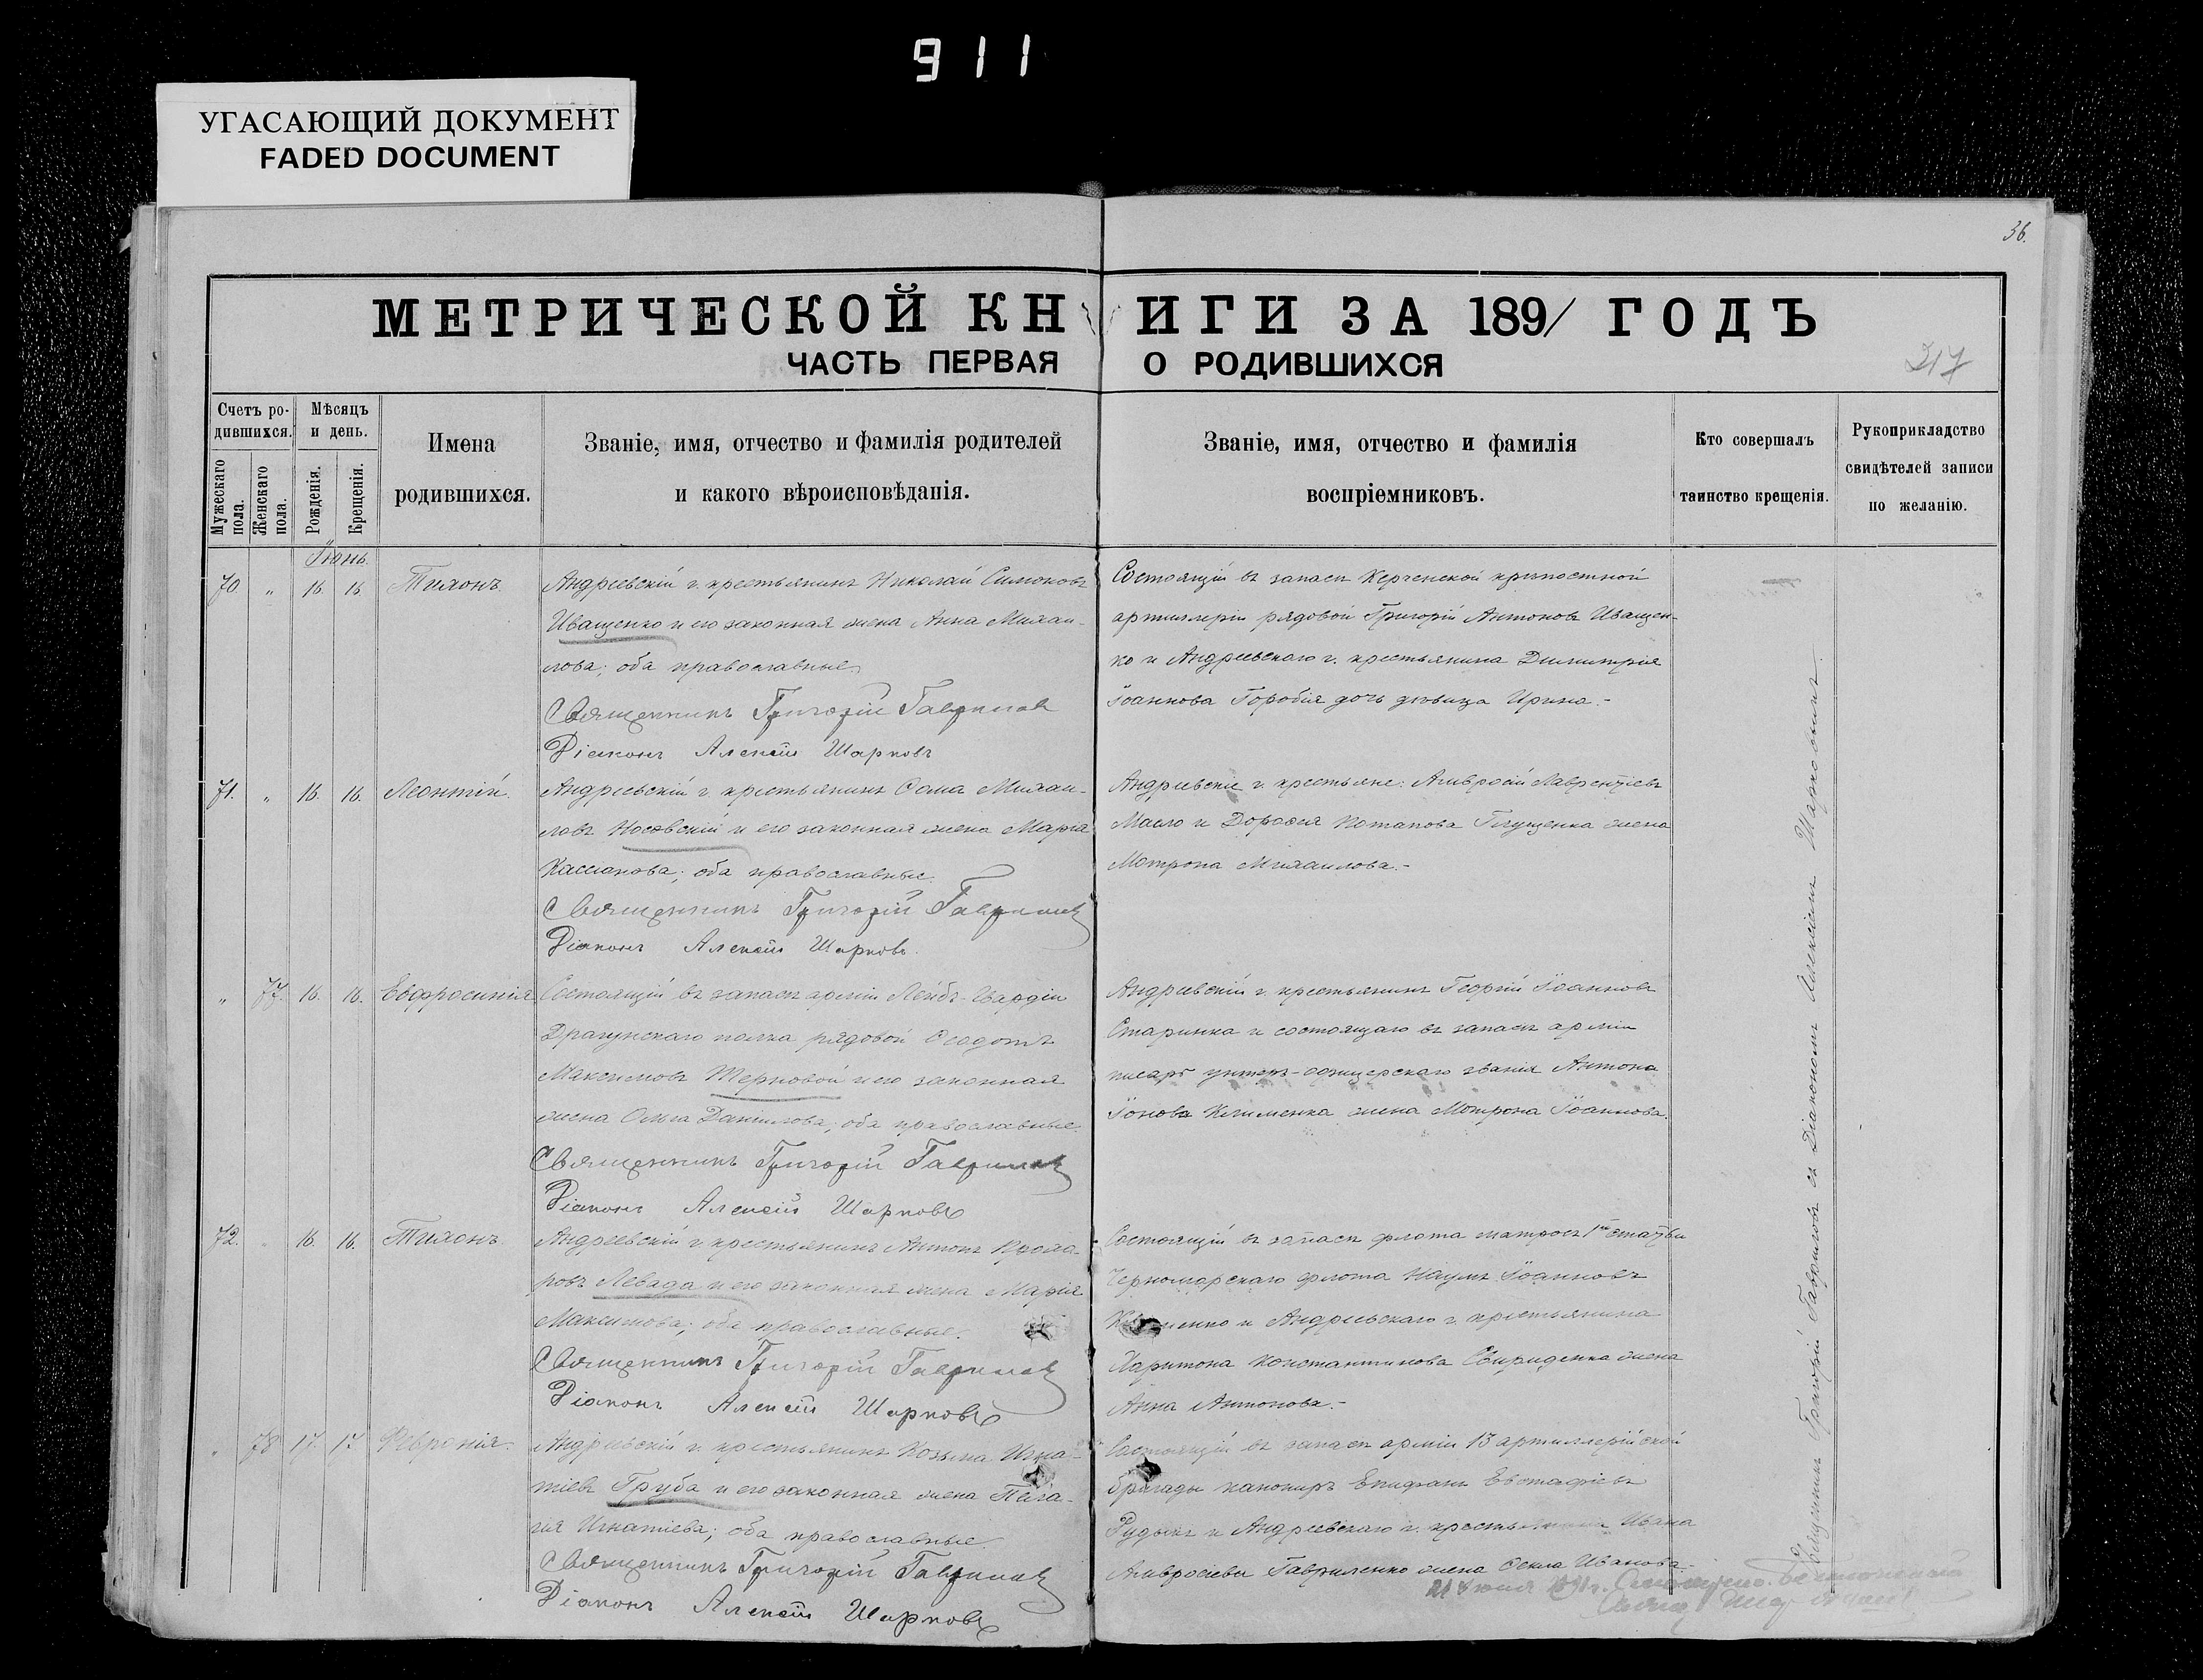 911
УГАСАЮЩИЙ ДОКУМЕНТ
FADED DOCUMENT
36.
МЕТРИЧЕСКОЙ КНИГИ ЗА 1891 ГОДЪ
ЧАСТЬ ПЕРВАЯ О РОДИВШИХСЯ
217
Счетъ ро-
дившихся.
Мужескаго пола.
Женскаго пола.
Мѣсяцъ
и день.
Рожденія.
Крещенія.
Имена
родившихся.
Званіе, имя, отчество и фамилія родителей
и какого вѣроисповѣданія.
Званіе, имя, отчество и фамилія
воспріемниковъ.
Кто совершалъ
таинство крещенія.
Рукоприкладство
свидѣтелей записи
по желанію.
Іюнь.
70. " 16. 16. Тихонъ.
Андреевскій г. крестьянинъ Николай Симоновъ
Иващенко и его законная жена Анна Михаи-
лова; оба православные.
Священникъ Григорій Гавриловъ
Діаконъ Алексій Шарковъ
Состоящій въ запасѣ Керченской крѣпостной
артиллеріи рядовой Григорій Антоновъ Иващен-
ко и Андреевскаго г. крестьянина Димитрія
Іоаннова Горобія дочь дѣвица Ирина.-
71. " 16. 16. Леонтій.
Андреевскій г. крестьянинъ Ѳома Михаи-
ловъ Носовскій и его законная жена Марія
Кассіанова; оба православные.
Священникъ Григорій Гавриловъ
Діаконъ Алексій Шарковъ.
Андреевскіе г. крестьяне: Амвросій Лаврентіевъ
Масло и Дороѳея Потапова Глущенка жена
Мотрона Михаилова.-
" 77. 16. 16. Евфросинія
Состоящій въ запасѣ арміи Лейбъ-Гвардіи
Драгунскаго полка рядовой Ѳеодотъ
Максимовъ Терновой и его законная
жена Ольга Даніилова; оба православные.
Священникъ Григорій Гавриловъ
Діаконъ Алексій Шарковъ
Андреевскій г. крестьянинъ Георгій Іоанновъ
Старинка и состоящаго въ запасѣ арміи
писаря унтеръ-офицерскаго званія Антона
Іонова Клименка жена Мотрона Іоаннова.
72. " 16. 16. Тихонъ
Андреевскій г. крестьянинъ Антонъ
Левада и его законная жена Марія
Максимова; оба православные.
Священникъ Григорій Гавриловъ
Діаконъ Алексій Шарковъ
Состоящій въ запасѣ флота матросъ 1й статьи
Черноморскаго флота Наумъ Іоанновъ
и Андреевскаго г. крестьянина
Харитона Константинова Свириденка жена
Анна Антонова.-
" 78. 17. 17. Февронія.
Андреевскій г. крестьянинъ Козьма Игна-
тіевъ Груба и его законная жена Пела-
гія Игнатіева; оба православные.
Священникъ Григорій Гавриловъ
Діаконъ Алексій Шарковъ
Состоящій въ запасѣ арміи 13 артиллерійской
бригады канониръ Епифанъ Евстафіевъ
Рудыкъ и Андреевскаго г. крестьянина Ивана
Амвросіева Гавриленко жена Ѳекла Иванова.-
Священникъ Григорій Гавриловъ съ Діакономъ Алексіемъ Шарковымъ.